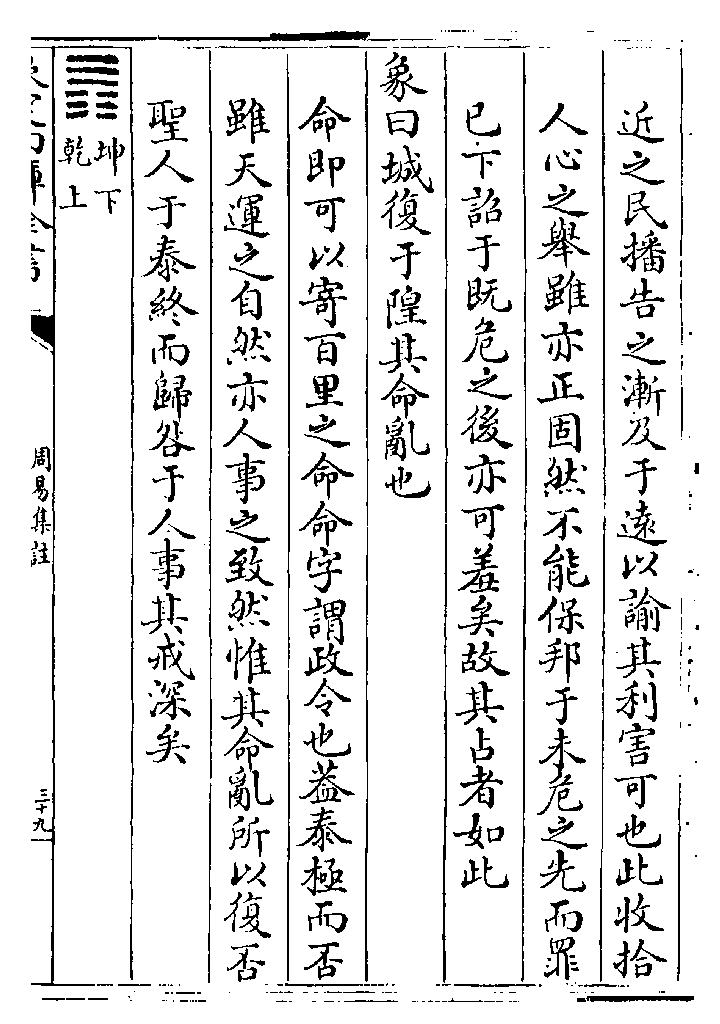 近之民播告之漸及于遠以諭其利害可也此收拾
人心之舉雖亦正固然不能保邦于未危之先而罪
已下詔于既危之後亦可羞矣故其占者如此
象曰城復于隍其命亂也
命即可以寄百里之命命字謂政令也葢泰極而否
雖天運之自然亦人事之致然惟其命亂所以復否
聖人于泰終而歸咎于人事其戒深矣
坤下
乾上
周易集註
三十九